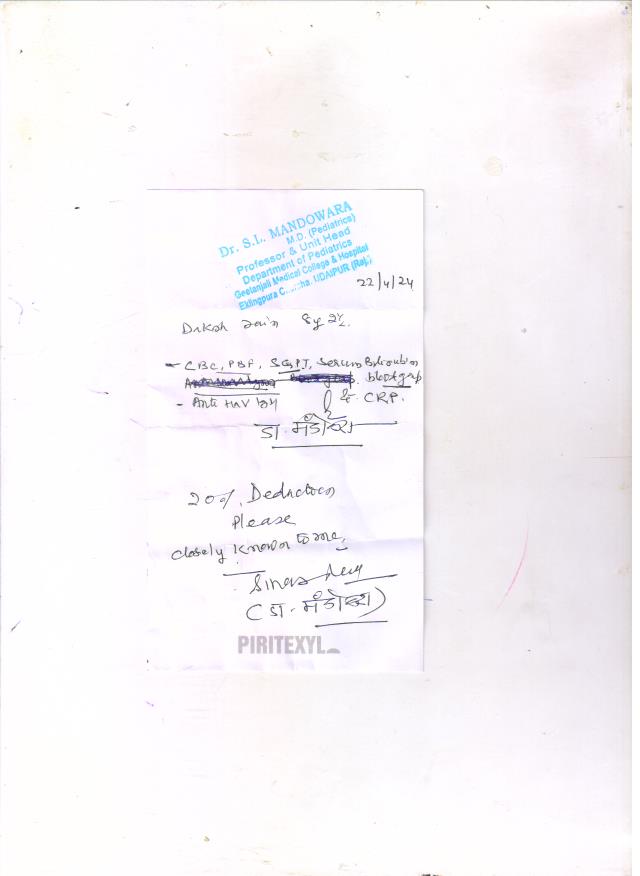 Dr. S.L. MANDOWARA
M.D. (Pediatrics)
Professor & Unit Head
Department of Pediatrics
Geetanjali Medical College & Hospital
Eklingpura C......ha, UDAIPUR (Raj.)
22/4/24
Daksh Jain 8y
- CBC, PBF, SGPT, Serum Bilirubin
blood group
- Anti HAV IgM & CRP.
डा. मंडोवरा
20% Deduction
Please
closely known to me.
(डा. मंडोवरा)
PIRITEXYL